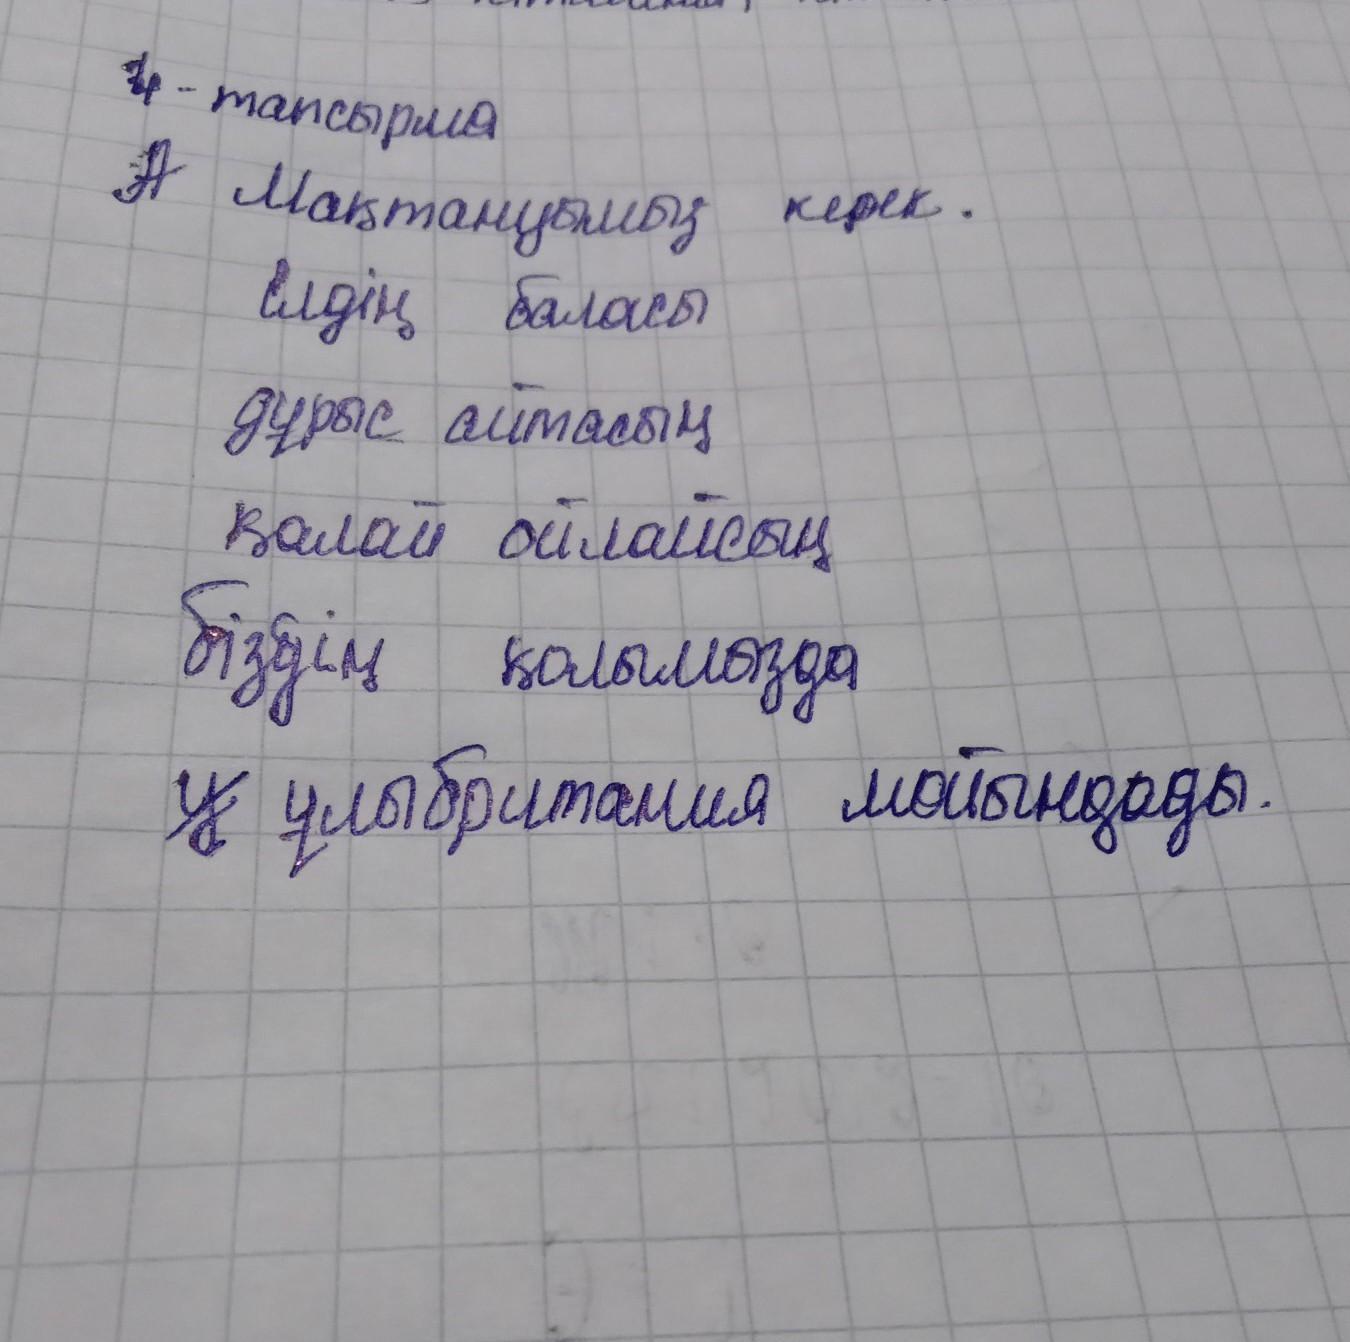 4-тапсырма
Мақтануымыз керек.
Елдің баласы
дұрыс айтасың
қалай ойлайсың
біздің қолымызда
ұлыбритания мойындады.